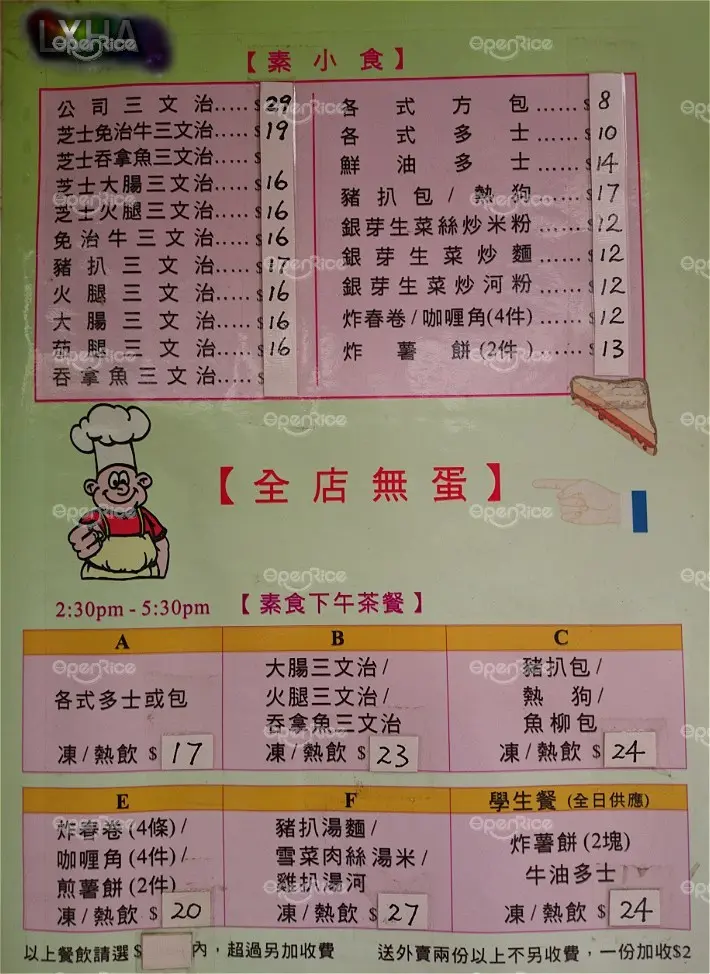 【素小食】
公司三文治..... $29
芝士免治牛三文治... $19
芝士吞拿魚三文治... $
芝士大腸三文治... $16
芝士火腿三文治... $16
免治牛三文治... $16
豬扒三文治..... $17
火腿三文治..... $16
大腸三文治..... $16
茄腿三文治..... $16
吞拿魚三文治..... $
各式方包...... $8
各式多士...... $10
鮮油多士...... $14
豬扒包/熱狗...... $17
銀芽生菜絲炒米粉...... $12
銀芽生菜炒麵...... $12
銀芽生菜炒河粉...... $12
炸春卷/咖喱角(4件)...... $12
炸薯餅(2件)...... $13
【全店無蛋】
2:30pm - 5:30pm 【素食下午茶餐】
A
各式多士或包
凍/熱飲 $17
B
大腸三文治/
火腿三文治/
吞拿魚三文治
凍/熱飲 $23
C
豬扒包/
熱狗/
魚柳包
凍/熱飲 $24
E
炸春卷(4條)/
咖喱角(4件)/
煎薯餅(2件)
凍/熱飲 $20
F
豬扒湯麵/
雪菜肉絲湯米/
雞扒湯河
凍/熱飲 $27
學生餐 (全日供應)
炸薯餅(2塊)
牛油多士
凍/熱飲 $24
以上餐飲請選$ 內，超過另加收費 送外賣兩份以上不另收費，一份加收$2
OpenRice